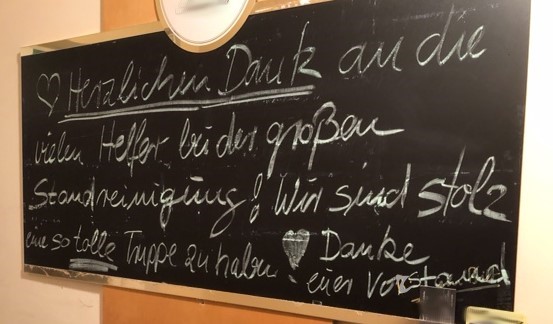 ♡ Herzlichen Dank an die
vielen Helfer bei der großen
Standreinigung! Wir sind stolz
eine so tolle Truppe zu haben! ♥ Danke
euer Vorstand